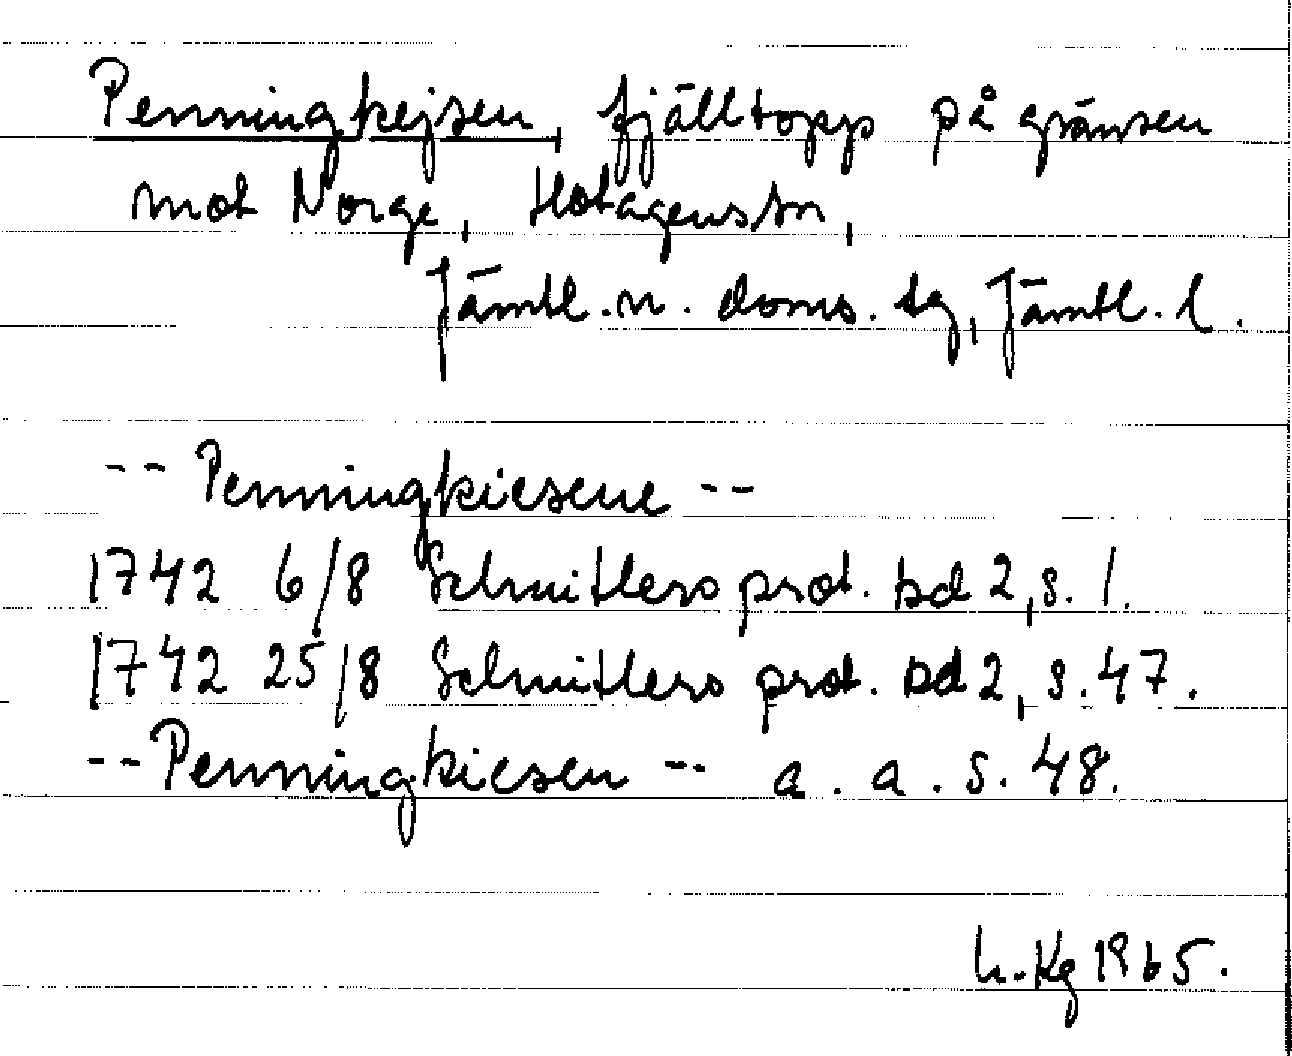 Penningkejsen, fjälltopp på gränsen
mot Norge, Hotagens sn,
Jämtl. n. doms. tg, Jämtl. l.
-- Penningkiesene --
1742 6/8 Schnitlers prot. bd 2, s. 1.
1742 25/8 Schnitlers prot. bd 2, s. 47.
-- Penningkiesen -- a. a. s. 48.
h. Kg 1965.